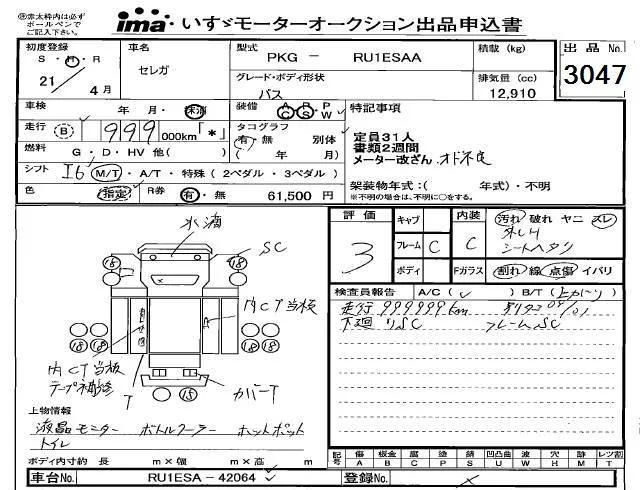 ※赤太枠内は必ず
ボールペンで
ご記入下さい。
ima いすゞモーターオークション出品申込書
初度登録
S・H・R
21/4月
車名
セレガ
型式
PKG － RU1ESAA
積載 (kg)
グレード・ボディ形状
バス
排気量 (cc)
12,910
出品No.
3047
車検 年 月・抹消
装備 A C・R S・P W
特記事項
走行 B 999 000km「*」
タコグラフ
有・無 別体
( 年 月)
定員31人
書類2週間
メーター改ざん、オド不良
燃料 G・D・HV 他( )
シフト I6 M/T・A/T・特殊(2ペダル・3ペダル)
色 指定 R券 有・無 61,500 円
架装物年式:( 年式)・不明
※不明の場合は、不明に○をする。
水滴
SC
18
18
内CT当板
18 18
18 18
内CT当板
テープ補修
T
15
カバーT
評価
3
キャブ
フレーム C
ボディ
内装
C
Fガラス
汚れ 破れ ヤニ ズレ
シートヘタリ
割れ 線 点傷 イバリ
検査員報告 A/C( ✓ ) B/T( )
走行999999km
下廻りSC フレームSC
上物情報
液晶モニター ボトルクーラー ホットポット
トイレ
ボディ内寸約 長 m×幅 m×高 m
記号 傷 A 板金 B 腐 C 塗 P 錆 S 凹凸曲 U 波 W 穴 H 跡 M レンズ割 T
車台No. RU1ESA－42064
登録No.